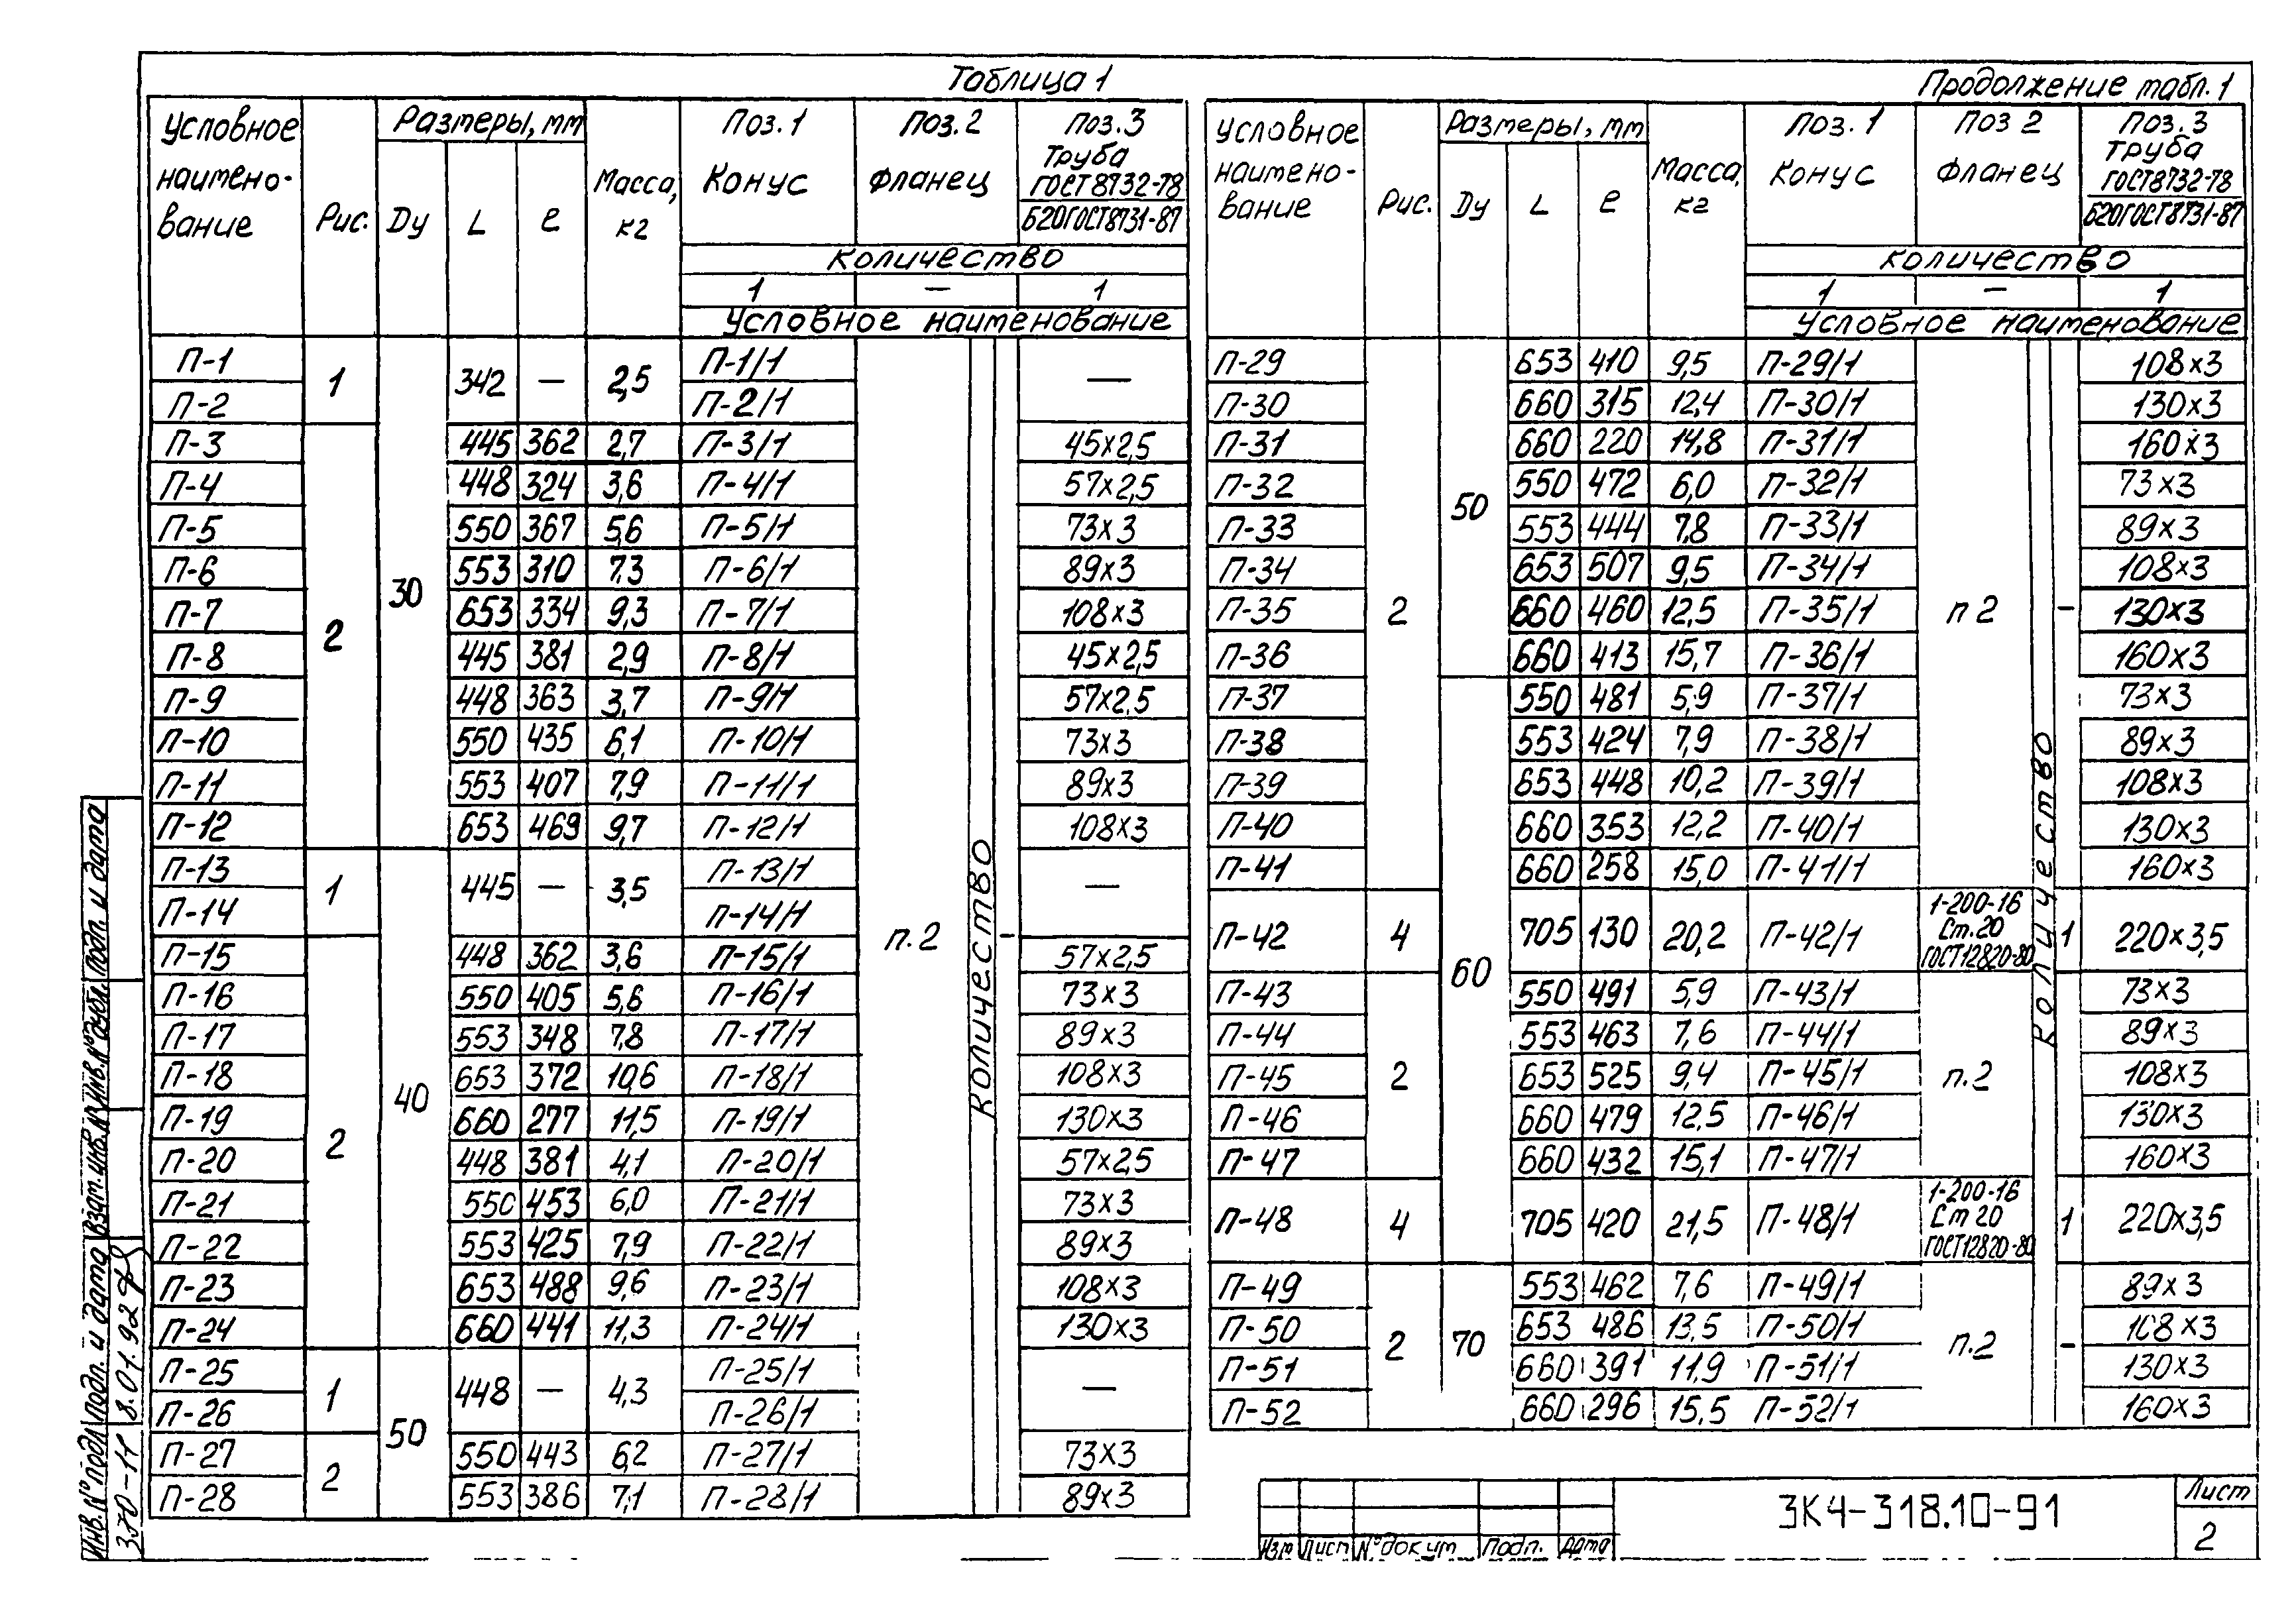 Таблица 1
Условное наимено-вание | Рис. | Размеры, мм: Dу | L | ℓ | Масса, кг | Поз. 1 Конус | Поз. 2 Фланец | Поз. 3 Труба ГОСТ 8732-78 / Б20 ГОСТ 8731-87
Количество
1 | — | 1
Условное наименование
П-1 | 1 | 30 | 342 | — | 2,5 | П-1/1 | п.2 | Количество | — | —
П-2 | П-2/1
П-3 | 2 | 445 | 362 | 2,7 | П-3/1 | 45×2,5
П-4 | 448 | 324 | 3,6 | П-4/1 | 57×2,5
П-5 | 550 | 367 | 5,6 | П-5/1 | 73×3
П-6 | 553 | 310 | 7,3 | П-6/1 | 89×3
П-7 | 653 | 334 | 9,3 | П-7/1 | 108×3
П-8 | 445 | 381 | 2,9 | П-8/1 | 45×2,5
П-9 | 448 | 363 | 3,7 | П-9/1 | 57×2,5
П-10 | 550 | 435 | 6,1 | П-10/1 | 73×3
П-11 | 553 | 407 | 7,9 | П-11/1 | 89×3
П-12 | 653 | 469 | 9,7 | П-12/1 | 108×3
П-13 | 1 | 40 | 445 | — | 3,5 | П-13/1 | —
П-14 | П-14/1
П-15 | 2 | 448 | 362 | 3,6 | П-15/1 | 57×2,5
П-16 | 550 | 405 | 5,6 | П-16/1 | 73×3
П-17 | 553 | 348 | 7,8 | П-17/1 | 89×3
П-18 | 653 | 372 | 10,6 | П-18/1 | 108×3
П-19 | 660 | 277 | 11,5 | П-19/1 | 130×3
П-20 | 448 | 381 | 4,1 | П-20/1 | 57×2,5
П-21 | 550 | 453 | 6,0 | П-21/1 | 73×3
П-22 | 553 | 425 | 7,9 | П-22/1 | 89×3
П-23 | 653 | 488 | 9,6 | П-23/1 | 108×3
П-24 | 660 | 441 | 11,3 | П-24/1 | 130×3
П-25 | 1 | 50 | 448 | — | 4,3 | П-25/1 | —
П-26 | П-26/1
П-27 | 2 | 550 | 443 | 6,2 | П-27/1 | 73×3
П-28 | 553 | 386 | 7,1 | П-28/1 | 89×3
Продолжение табл. 1
Условное наимено-вание | Рис. | Размеры, мм: Dу | L | ℓ | Масса, кг | Поз. 1 Конус | Поз 2 Фланец | Поз. 3 Труба ГОСТ 8732-78 / Б20 ГОСТ 8731-87
Количество
1 | — | 1
Условное наименование
П-29 | 2 | 50 | 653 | 410 | 9,5 | П-29/1 | п 2 | Количество | - | 108×3
П-30 | 660 | 315 | 12,4 | П-30/1 | 130×3
П-31 | 660 | 220 | 14,8 | П-31/1 | 160×3
П-32 | 550 | 472 | 6,0 | П-32/1 | 73×3
П-33 | 553 | 444 | 7,8 | П-33/1 | 89×3
П-34 | 653 | 507 | 9,5 | П-34/1 | 108×3
П-35 | 660 | 460 | 12,5 | П-35/1 | 130×3
П-36 | 660 | 413 | 15,7 | П-36/1 | 160×3
П-37 | 60 | 550 | 481 | 5,9 | П-37/1 | 73×3
П-38 | 553 | 424 | 7,9 | П-38/1 | 89×3
П-39 | 653 | 448 | 10,2 | П-39/1 | 108×3
П-40 | 660 | 353 | 12,2 | П-40/1 | 130×3
П-41 | 660 | 258 | 15,0 | П-41/1 | 160×3
П-42 | 4 | 705 | 130 | 20,2 | П-42/1 | 1-200-16 Ст.20 ГОСТ 12820-80 | 1 | 220×3,5
П-43 | 2 | 550 | 491 | 5,9 | П-43/1 | п.2 | 73×3
П-44 | 553 | 463 | 7,6 | П-44/1 | 89×3
П-45 | 653 | 525 | 9,4 | П-45/1 | 108×3
П-46 | 660 | 479 | 12,5 | П-46/1 | 130×3
П-47 | 660 | 432 | 15,1 | П-47/1 | 160×3
П-48 | 4 | 705 | 420 | 21,5 | П-48/1 | 1-200-16 Ст 20 ГОСТ 12820-80 | 1 | 220×3,5
П-49 | 2 | 70 | 553 | 462 | 7,6 | П-49/1 | п.2 | - | 89×3
П-50 | 653 | 486 | 13,5 | П-50/1 | 108×3
П-51 | 660 | 391 | 11,9 | П-51/1 | 130×3
П-52 | 660 | 296 | 15,5 | П-52/1 | 160×3
Изм | Лист | № докум | Подп. | Дата
ЗК4-318.10-91
Лист
2
Инв. № подл | Подп. и дата | Взам. инв. № | Инв. № дубл. | Подп. и дата
8.01.92